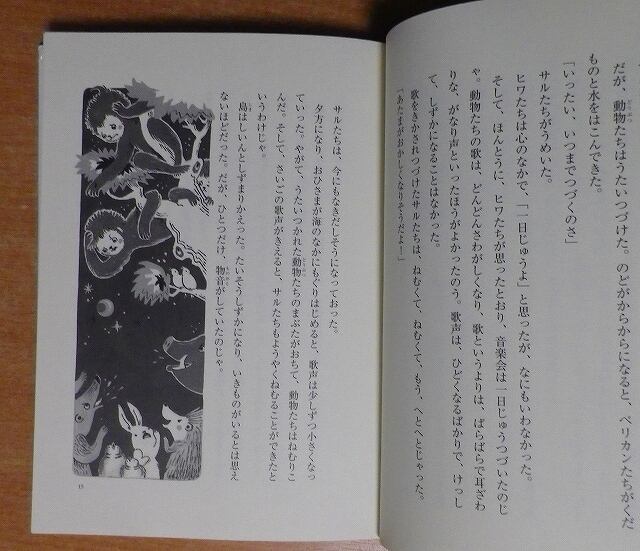 だが、動物たちはうたいつづけた。のどがからからになると、ペリカンたちがくだ
ものと水をはこんできた。
「いったい、いつまでつづくのさ」
サルたちがうめいた。
ヒワたちは心のなかで、「一日じゅうよ」と思ったが、なにもいわなかった。
そして、ほんとうに、ヒワたちが思ったとおり、音楽会は一日じゅうつづいたのじ
ゃ。動物たちの歌は、どんどんさわがしくなり、歌というよりは、ばらばらで耳ざわ
りな、がなり声といったほうがよかったのう。歌声は、ひどくなるばかりで、けっし
て、しずかになることはなかった。
歌をきかされつづけたサルたちは、ねむくて、ねむくて、もう、へとへとじゃった。
「あたまがおかしくなりそうだよー」
サルたちは、今にもなきだしそうになっておった。
夕方になり、おひさまが海のなかにもぐりはじめると、歌声は少しずつ小さくなっ
ていった。やがて、うたいつかれた動物たちのまぶたがおちて、動物たちはねむりこ
んだ。そして、さいごの歌声がきえると、サルたちもようやくねむることができたと
いうわけじゃ。
島はしいんとしずまりかえった。たいそうしずかになり、いきものがいるとは思え
ないほどだった。だが、ひとつだけ、物音がしていたのじゃ。
15